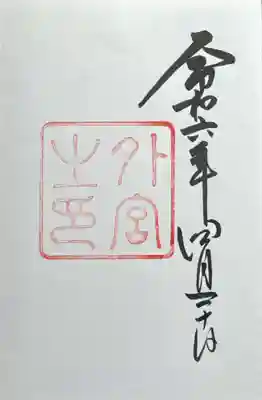 令和六年四月二十日
外宮
之印